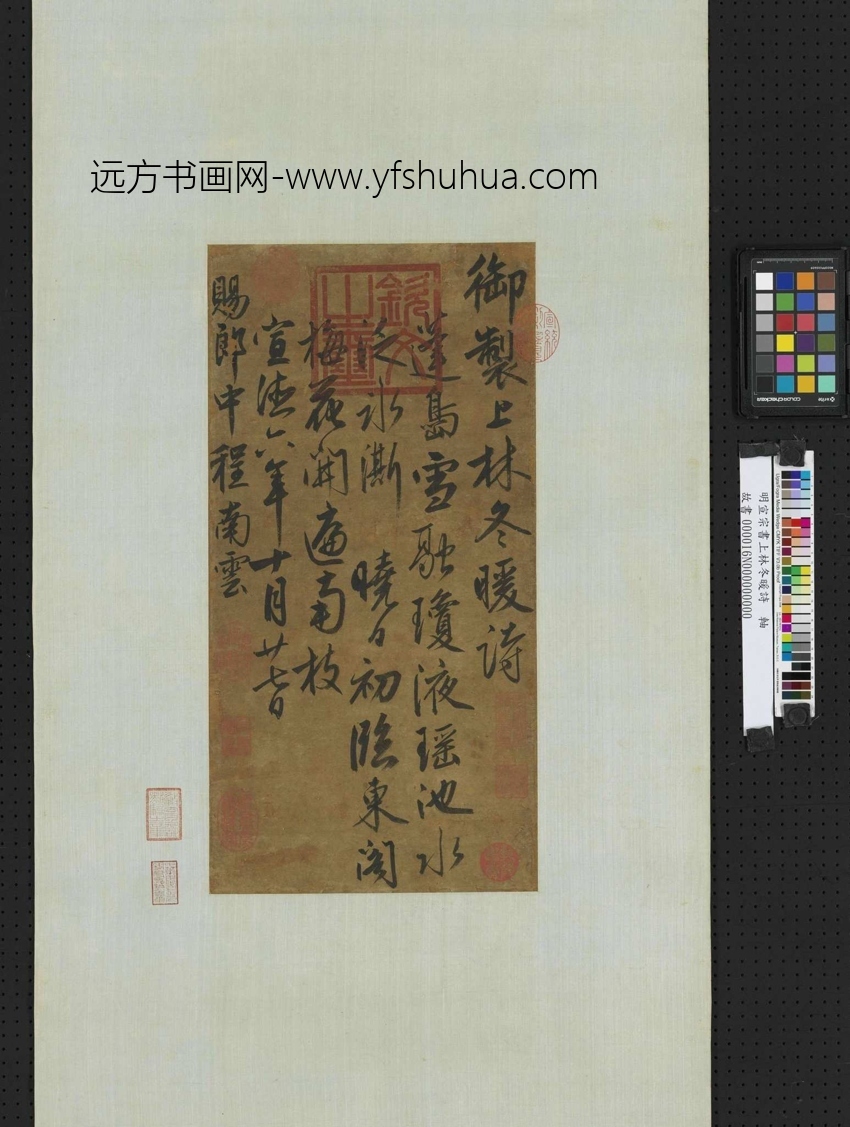 远方书画网-www.yfshuhua.com
御製上林冬暖詩
蓬島雪融瓊液瑶池水
泛冰澌 曉日初臨東閣
梅花開遍南枝
宣德六年十月廿七日
賜郎中程南雲
欽文之璽
明宣宗書上林冬暖詩 軸
故書 000016N000000000